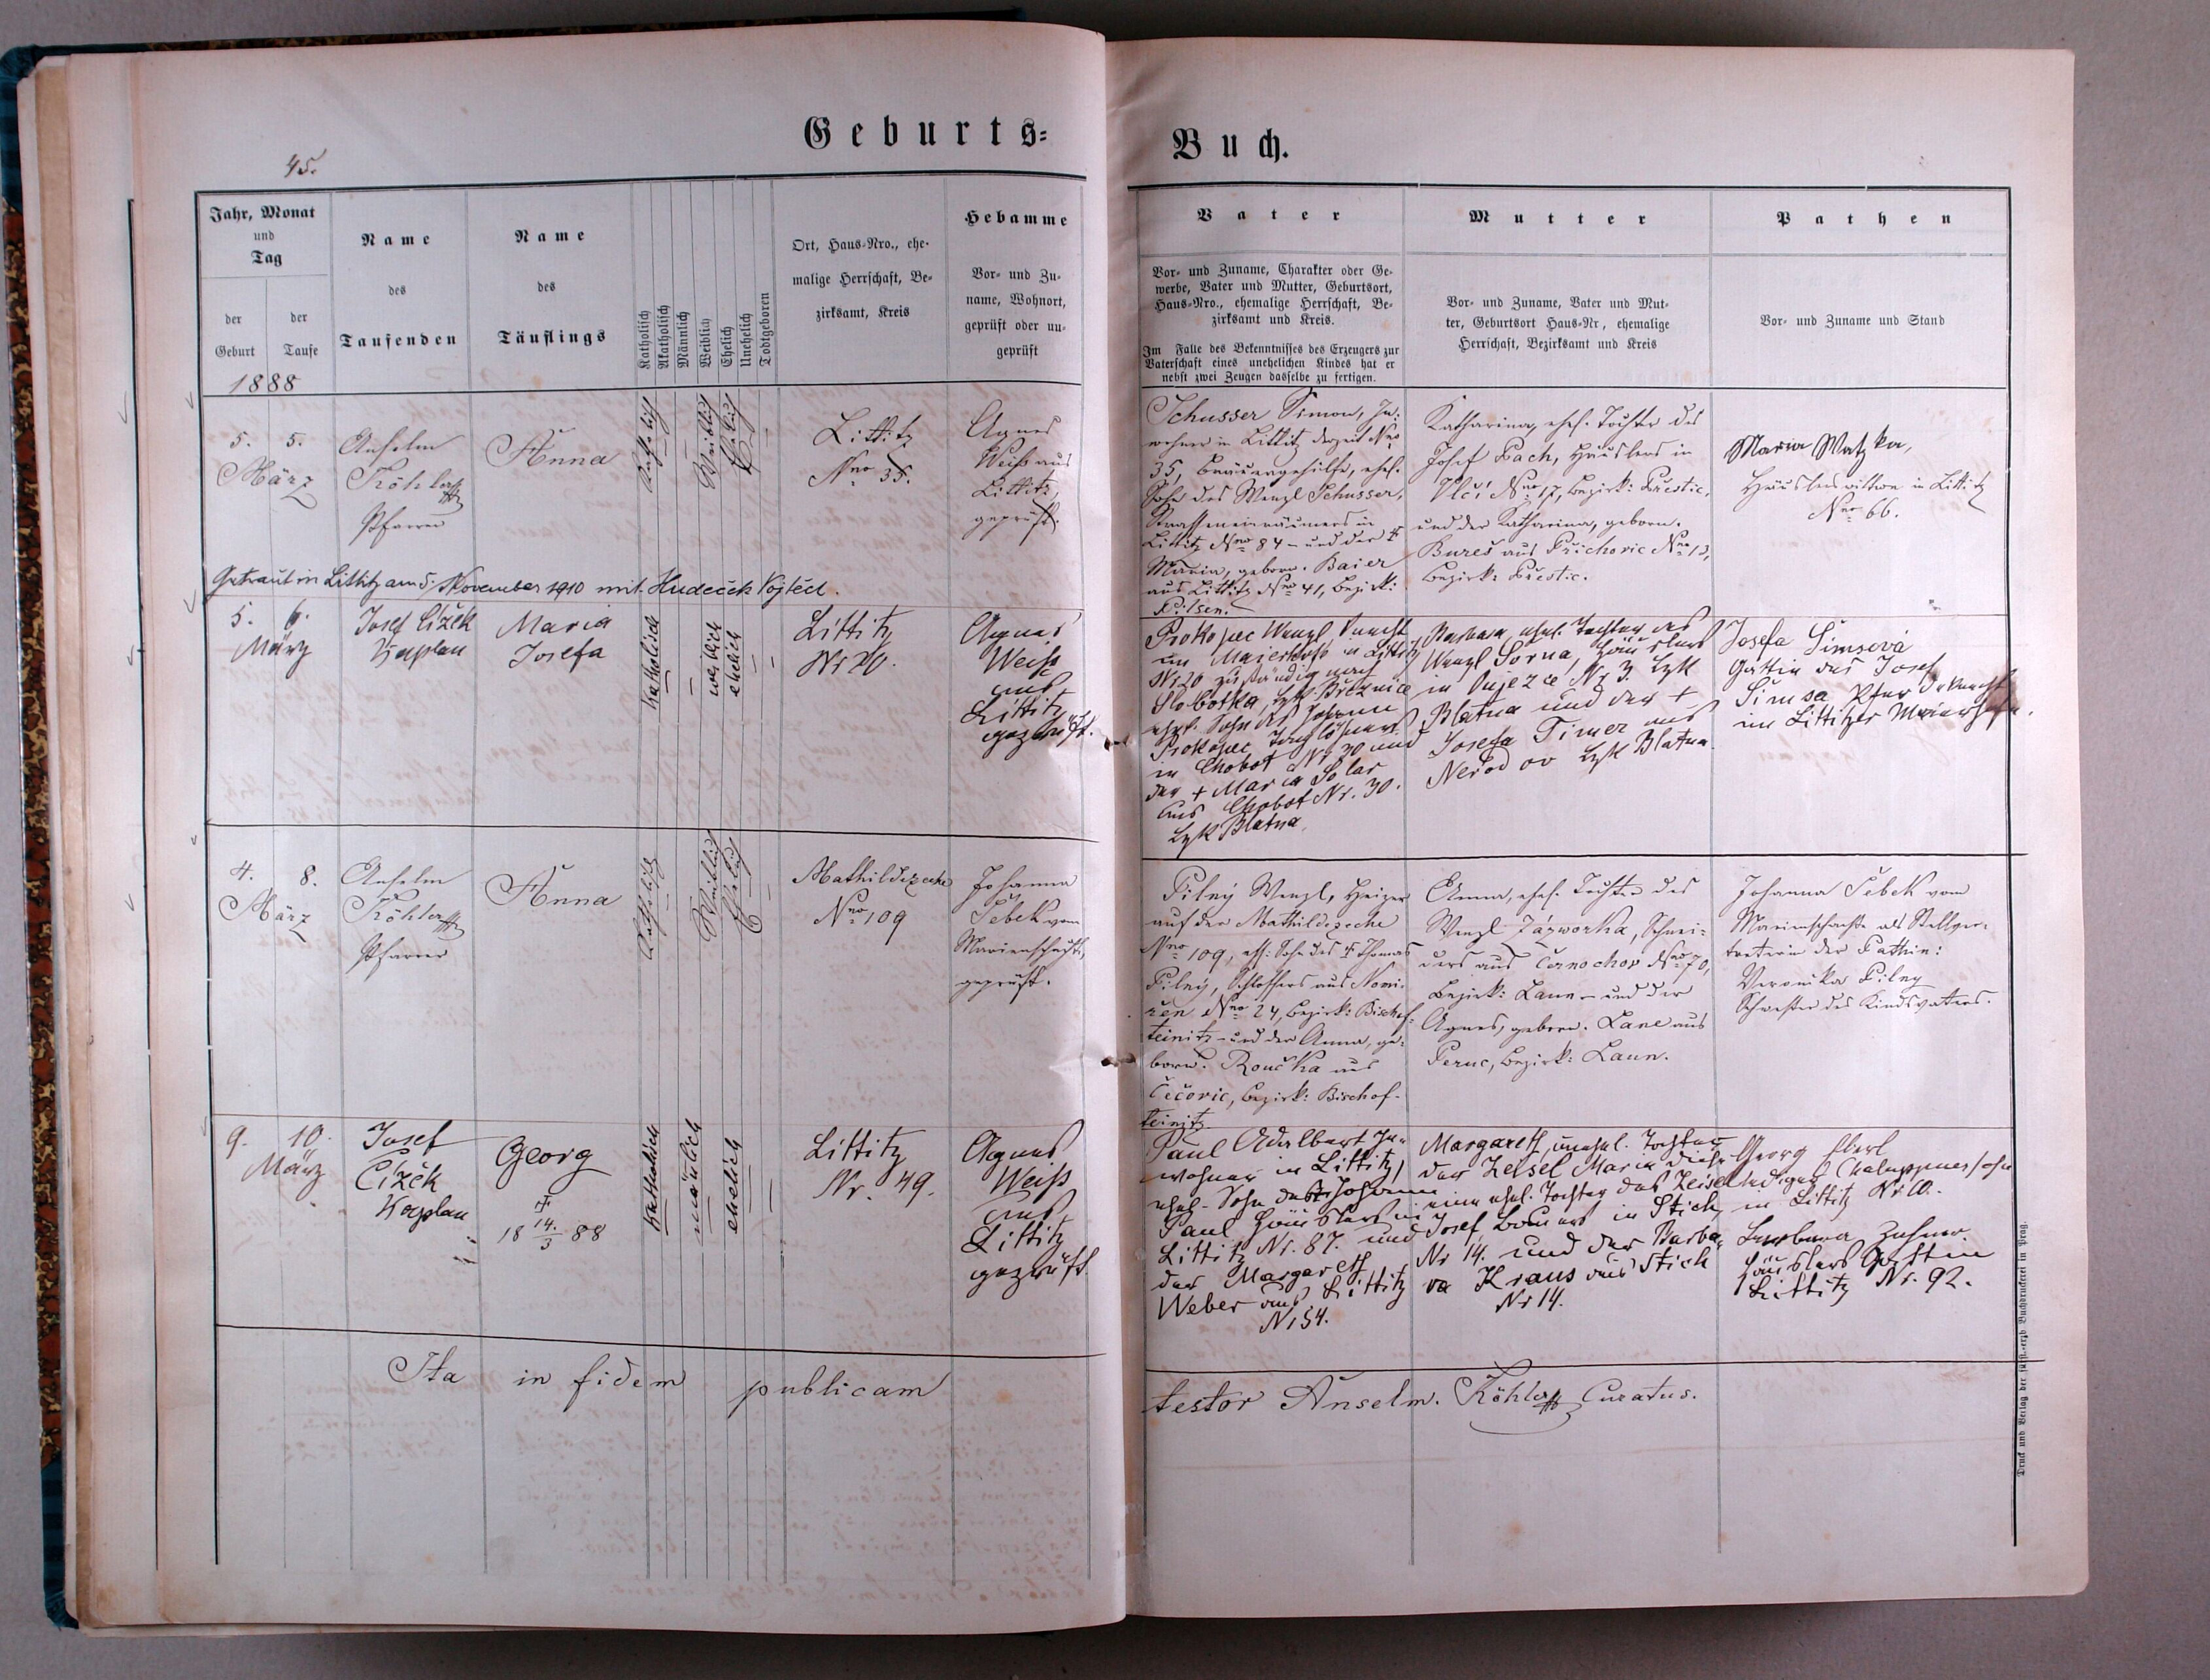 Geburts-
Buch.
45.
Jahr, Monat
und
Tag
der
Geburt
der
Taufe
Name
des
Taufenden
Name
des
Täuflings
Katholisch
Akatholisch
Männlich
Weiblich
Ehelich
Unehelich
Todtgeboren
Ort, Haus-Nro., ehe-
malige Herrschaft, Be-
zirksamt, Kreis
Hebamme
Vor- und Zu-
name, Wohnort,
geprüft oder un-
geprüft
Vater
Vor- und Zuname, Charakter oder Ge-
werbe, Vater und Mutter, Geburtsort,
Haus-Nro., ehemalige Herrschaft, Be-
zirksamt und Kreis.
Im Falle des Bekenntnisses des Erzeugers zur
Vaterschaft eines unehelichen Kindes hat er
nebst zwei Zeugen dasselbe zu fertigen.
Mutter
Vor- und Zuname, Vater und Mut-
ter, Geburtsort Haus-Nr, ehemalige
Herrschaft, Bezirksamt und Kreis
Pathen
Vor- und Zuname und Stand
1888
5. 5.
März
Anselm
Köhler
Pfarrer
Anna
Katholisch
Weiblich
Ehelich
Littitz
Nro 35.
Agnes
Weiß aus
Littitz,
geprüft.
Schusser Simon, In-
wohner in Littitz derzeit Nro
35, Bräuergehilfe, ehel.
Sohn des Wenzl Schusser,
Strasseneinräumers in
Littitz Nro 84 - und der †
Maria, geborn. Baier
aus Littitz Nro 41, Bezirk:
Pilsen.
Katharina, ehel. Tochter des
Josef Pach, Häuslers in
Vlčí Nro 17, Bezirk: Přestic,
und der Katharina, geborn.
Bureš aus Přichovic Nro 12,
Bezirk: Přestic.
Maria Watzka,
Häuslerswittwe in Littitz
Nro 66.
Getraut in Littitz am 5. November 1910 mit Hudeček Vojtěch.
5. 6.
März
Josef Čížek
Kaplan
Maria
Josefa
Katholisch
weiblich
ehelich
Littitz
Nr 20.
Agnes
Weiss
aus
Littitz
geprüft.
Prokopec Wenzl, Knecht
im Maierhofe in Littitz
Nr 20 zuständig nach
Slobotka, Bzk Březnice
ehel. Sohn des Johann
Prokopec Taglöhners
in Chobot Nr 30 und
der † Maria Solar
aus Chobot Nr. 30.
Bzk Blatna
Barbara ehel. Tochter des
Wenzl Sorna, Häuslers
in Oujezce Nr 3. Bzk
Blatna und der †
Josefa Timer aus
Nerodov Bzk Blatna.
Josefa Šimsová
Gattin des Josef
Šimsa Pferdeknecht
im Littitzer Maierhofe.
4. 8.
März
Anselm
Köhler
Pfarrer
Anna
Katholisch
Weiblich
Ehelich
Mathildezeche
Nro 109
Johanna
Šebek vom
Marienschacht,
geprüft.
Pilný Wenzl, Heizer
auf der Mathildezeche
Nro 109, eh. Sohn des † Thomas
Pilný, Schlossers aus Nemi-
čen Nro 24, Bezirk: Bischof-
teinitz - und der Anna, ge-
born. Roučka aus
Čečovic, Bezirk: Bischof-
teinitz.
Anna, ehel. Tochter des
Wenzl Zázworka, Schnei-
ders aus Černochov Nro 70,
Bezirk: Laun - und der
Agnes, geborn. Lane aus
Peruc, Bezirk: Laun.
Johanna Šebek vom
Marienschachte als Stellver-
treterin der Pathin:
Veronika Pilny
Schwester des Kindsvaters.
9. 10.
März
Josef
Čížek
Kaplan
Georg
†
18 14./3 88
Katholisch
mänlich
ehelich
Littitz
Nr. 49.
Agnes
Weiss
aus
Littitz
geprüft
Paul Adalbert In-
wohner in Littitz,
ehel. Sohn des Johann
Paul Häuslers in
Littitz Nr. 87. und
der Margareth
Weber aus Littitz
Nr 54.
Margareth, unehel. Tochter
der Zeisel Maria diese
eine ehel. Tochter des Zeisel
Josef, Bauers in Stich
Nr 14. und der Barba-
ra Kraus aus Stich
Nr 14.
Georg Eberl
lediger Chaluppnersohn
in Littitz Nr. 10.
Barbara Zahner.
Häuslers Gattin
Littitz Nr. 92.
Ita in fidem publicam
testor Anselm. Köhler Curatus.
Druck und Verlag der fürst.-erzb Buchdruckerei in Prag.